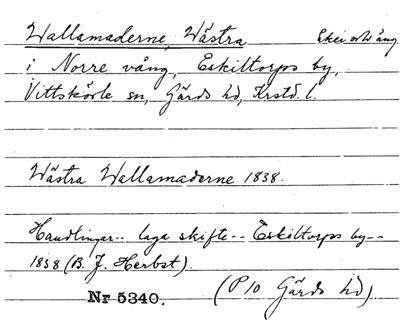 Wallamaderne, Wästra
i Norre vång, Eskiltorps by,
Vittskövle sn, Gärds hd, Krstd. l.
Wästra Wallamaderne 1838.
Handlingar.. laga skifte -- Eskiltorps by --
1838 (B. J. Herbst).
Nr 5340. (P 10 Gärds hd)